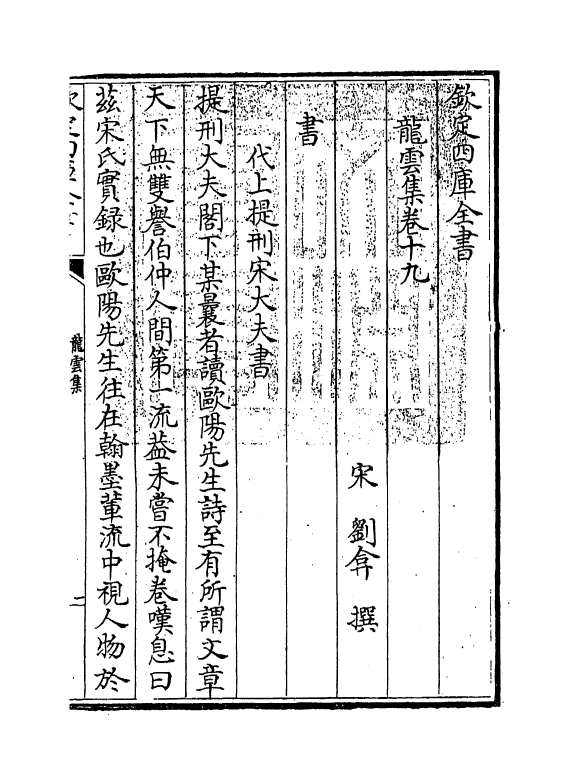 欽定四庫全書
龍雲集卷十九
宋 劉弇 撰
書
代上提刑宋大夫書
提刑大夫閤下某曩者讀歐陽先生詩至有所謂文章
天下無雙譽伯仲人間第一流葢未嘗不掩卷嘆息曰
茲宋氏實録也歐陽先生往在翰墨軰流中視人物於
龍雲集